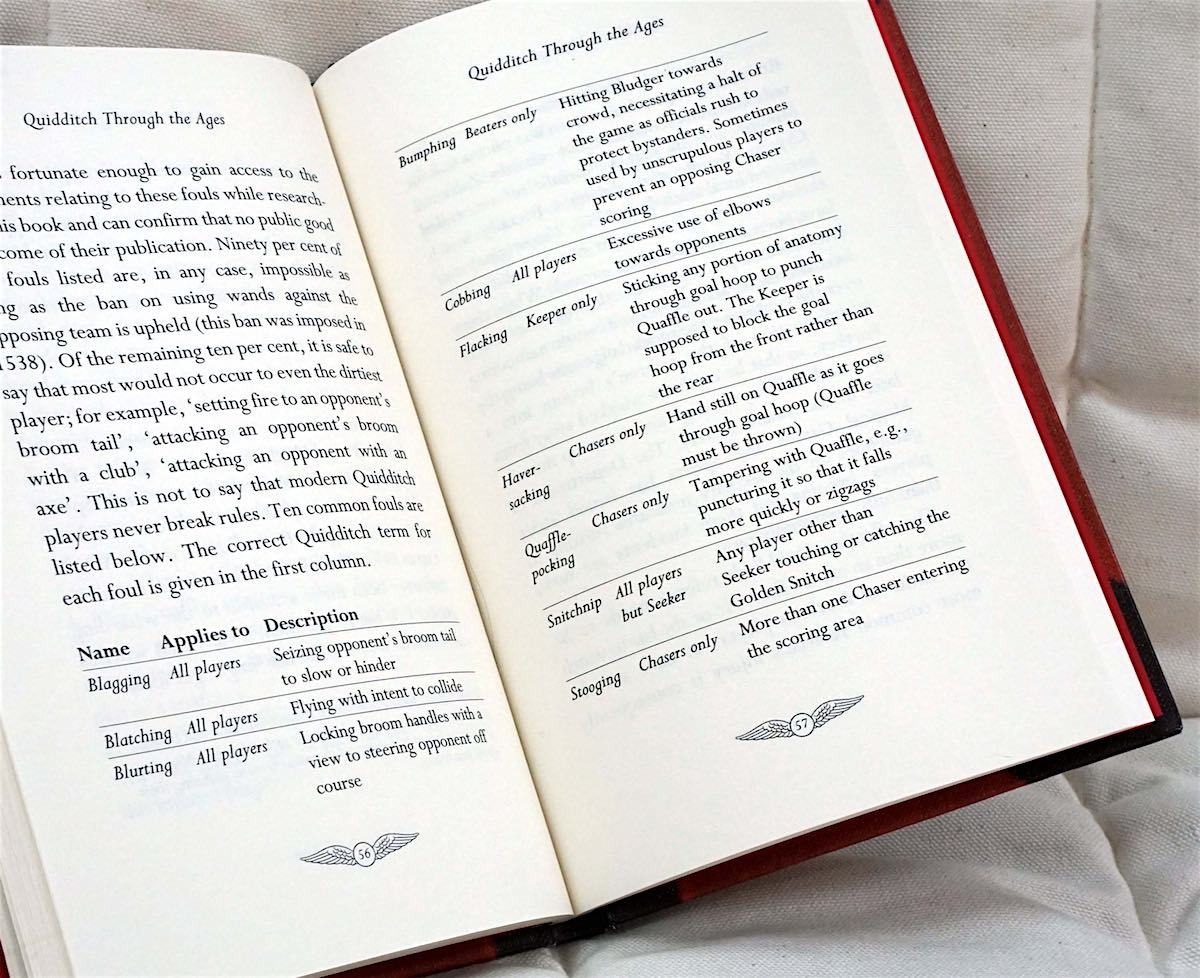 Quidditch Through the Ages
fortunate enough to gain access to the
relating to these fouls while research-
book and can confirm that no public good
come of their publication. Ninety per cent of
fouls listed are, in any case, impossible as
as the ban on using wands against the
opposing team is upheld (this ban was imposed in
1538). Of the remaining ten per cent, it is safe to
say that most would not occur to even the dirtiest
player; for example, ‘setting fire to an opponent’s
broom tail’, ‘attacking an opponent’s broom
with a club’, ‘attacking an opponent with an
axe’. This is not to say that modern Quidditch
players never break rules. Ten common fouls are
listed below. The correct Quidditch term for
each foul is given in the first column.
Name Applies to Description
Blagging All players Seizing opponent’s broom tail
to slow or hinder
Blatching All players Flying with intent to collide
Blurting All players Locking broom handles with a
view to steering opponent off
course
56
Quidditch Through the Ages
Bumphing Beaters only Hitting Bludger towards
crowd, necessitating a halt of
the game as officials rush to
protect bystanders. Sometimes
used by unscrupulous players to
prevent an opposing Chaser
scoring
Cobbing All players Excessive use of elbows
towards opponents
Flacking Keeper only Sticking any portion of anatomy
through goal hoop to punch
Quaffle out. The Keeper is
supposed to block the goal
hoop from the front rather than
the rear
Haver- Chasers only Hand still on Quaffle as it goes
sacking through goal hoop (Quaffle
must be thrown)
Quaffle- Chasers only Tampering with Quaffle, e.g.,
pocking puncturing it so that it falls
more quickly or zigzags
Snitchnip All players Any player other than
but Seeker Seeker touching or catching the
Golden Snitch
Stooging Chasers only More than one Chaser entering
the scoring area
57